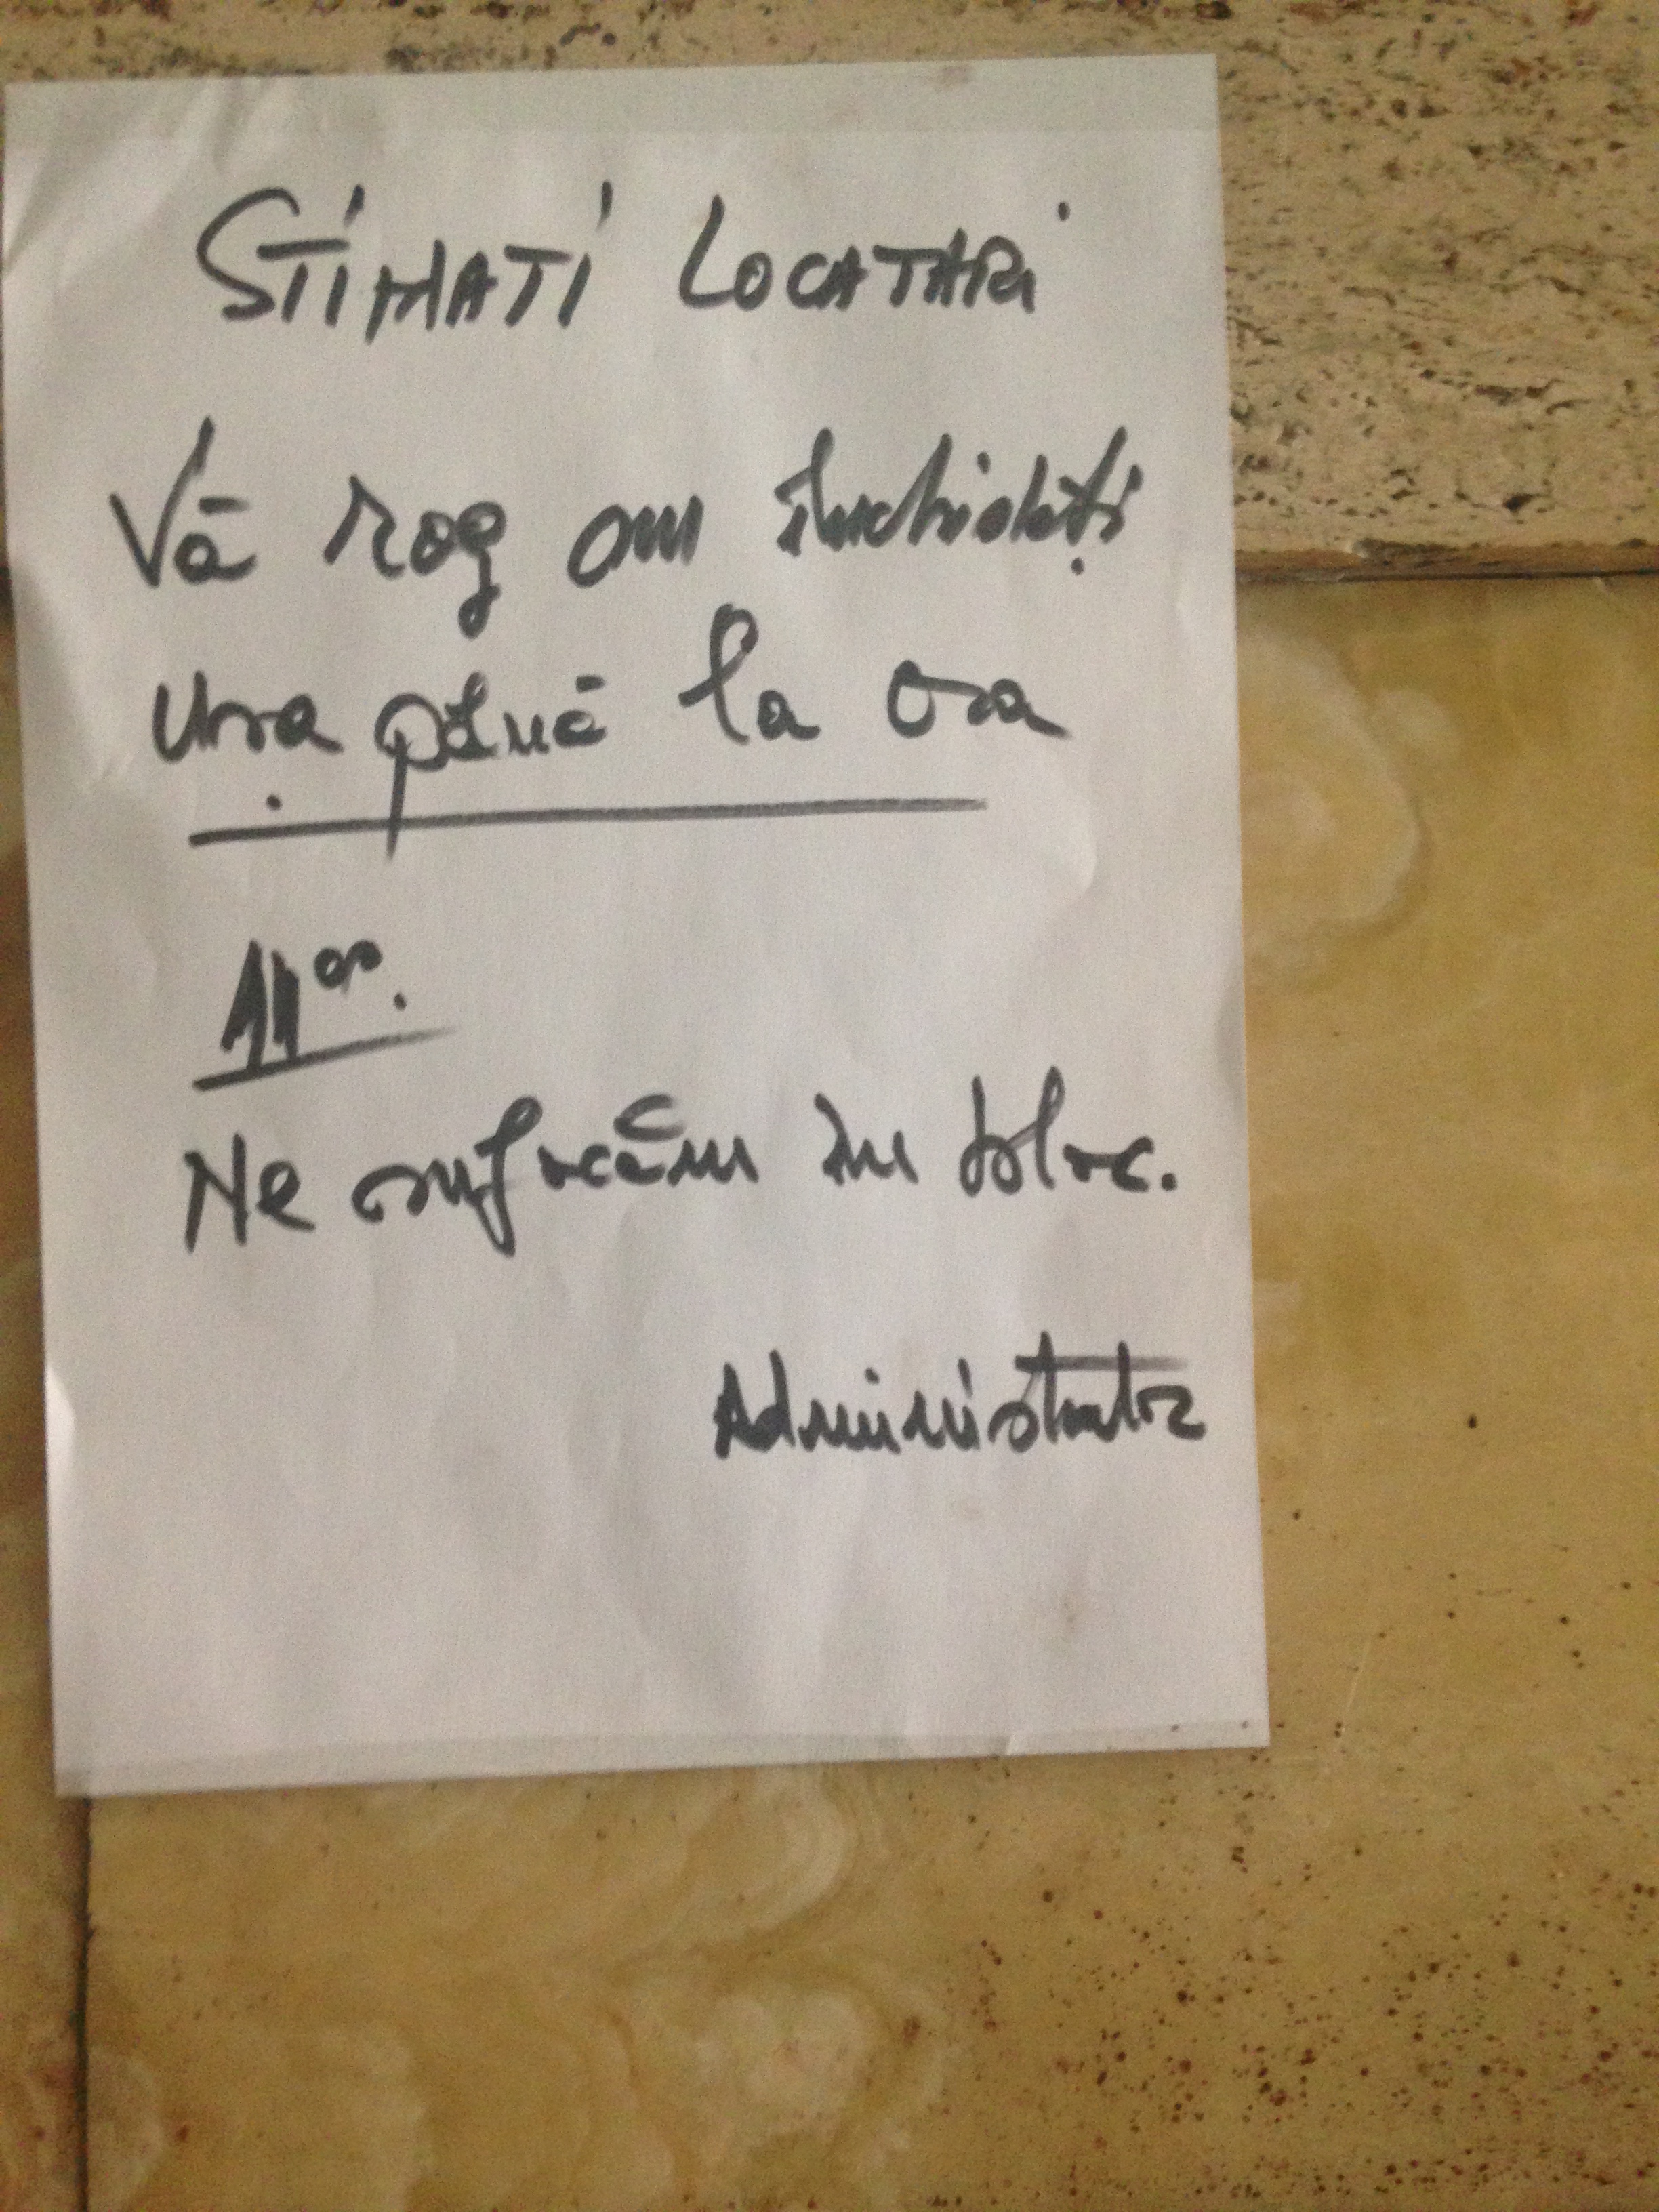 STIMATI LOCATARI
Vă rog nu închideți
ușa până la ora
11⁰⁰.
Ne sufocăm în bloc.
Administrator